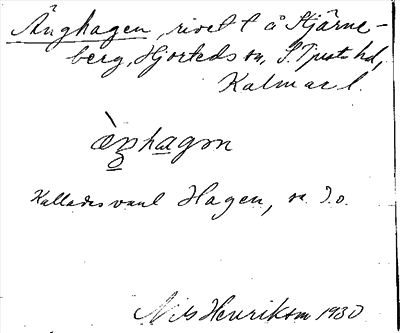 Änghagen, rivet t å Stjärne-
berg, Hjorteds sn, S. Tjusts hd,
Kalmar l.
ä̀ŋhagɔn
Kallades vanl Hagen, se d.o.
Nils Henrikson 1930